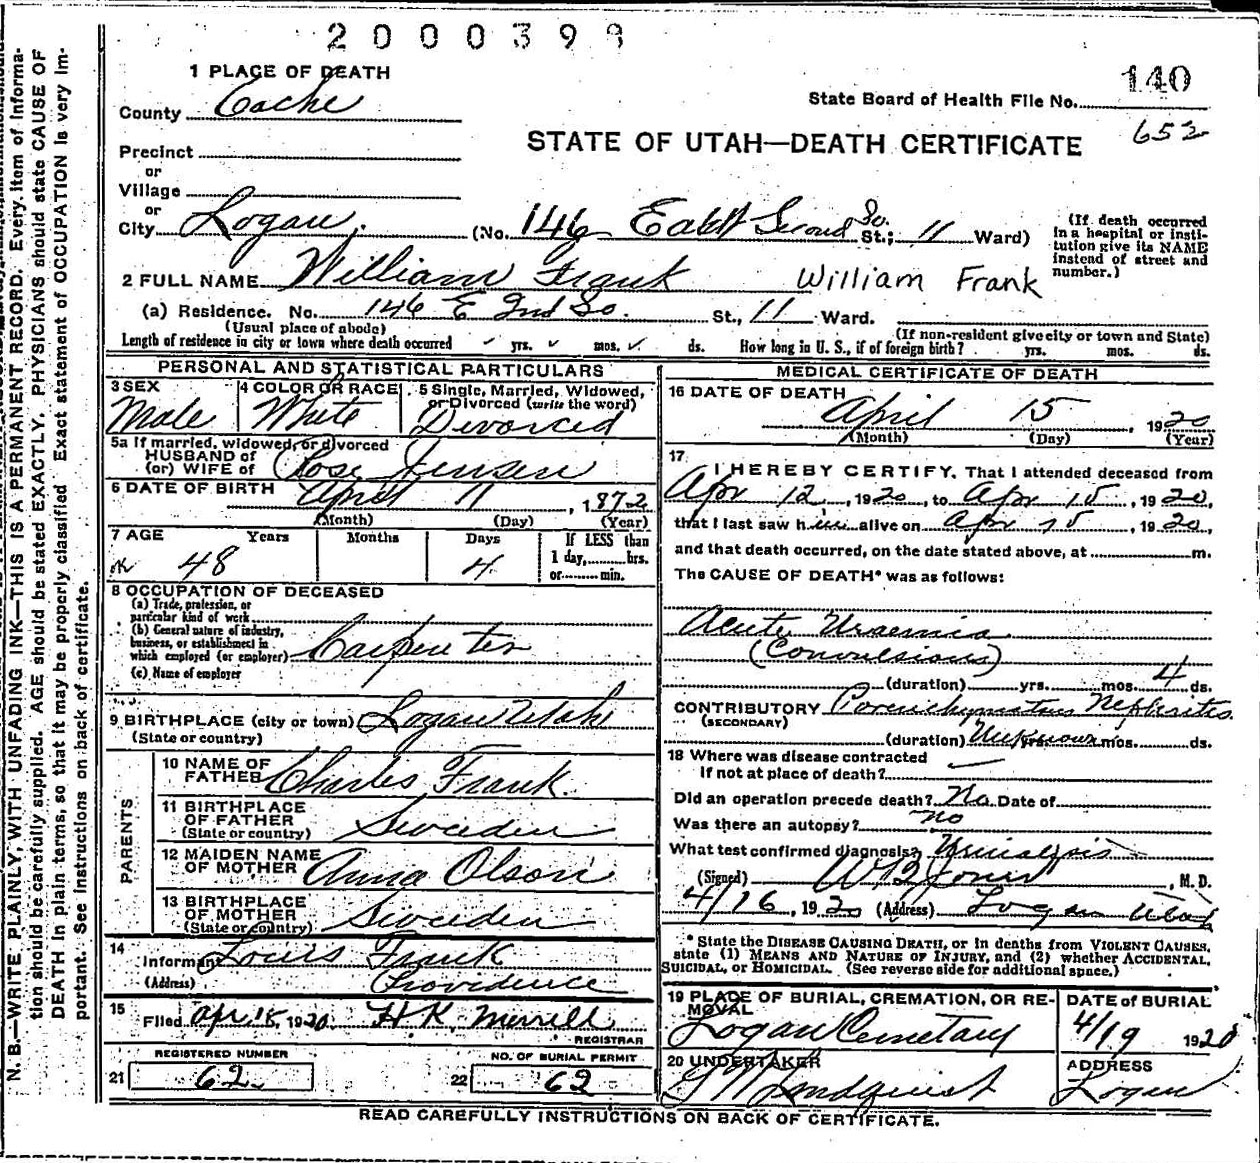 2000399
1 PLACE OF DEATH
140
County Cache
State Board of Health File No.
652
STATE OF UTAH—DEATH CERTIFICATE
Precinct
or
Village
or
City Logan. (No. 146 East Second So. St.; 11 Ward)
(If death occurred in a hospital or institution give its NAME instead of street and number.)
2 FULL NAME William Frank William Frank
(a) Residence. No. 146 E 2nd So. St., 11 Ward.
(Usual place of abode) (If non-resident give city or town and State)
Length of residence in city or town where death occurred yrs. mos. ds. How long in U. S., if of foreign birth? yrs. mos. ds.
PERSONAL AND STATISTICAL PARTICULARS
3 SEX
Male
4 COLOR OR RACE
White
5 Single, Married, Widowed, or Divorced (write the word)
Divorced
5a If married, widowed, or divorced
HUSBAND of
(or) WIFE of Rose Jensen
6 DATE OF BIRTH April 11, 1872
(Month) (Day) (Year)
7 AGE Years Months Days If LESS than
48 4 1 day, hrs.
or min.
8 OCCUPATION OF DECEASED
(a) Trade, profession, or
particular kind of work
(b) General nature of industry,
business, or establishment in
which employed (or employer) Carpenter
(c) Name of employer
9 BIRTHPLACE (city or town) Logan Utah
(State or country)
PARENTS
10 NAME OF
FATHER Charles Frank.
11 BIRTHPLACE
OF FATHER
(State or country) Sweeden
12 MAIDEN NAME
OF MOTHER Anna Olson
13 BIRTHPLACE
OF MOTHER
(State or country) Sweeden
14
Informant Louis Frank
(Address) Providence
15
Filed Apr 18, 1920. H.K. Merrill
REGISTRAR
REGISTERED NUMBER
21 62
NO. OF BURIAL PERMIT
22 62
MEDICAL CERTIFICATE OF DEATH
16 DATE OF DEATH
April 15, 1920
(Month) (Day) (Year)
17
I HEREBY CERTIFY, That I attended deceased from
Apr 12, 1920, to Apr 15, 1920,
that I last saw him alive on Apr 15, 1920,
and that death occurred, on the date stated above, at m.
The CAUSE OF DEATH* was as follows:
Acute Uraemia
(Convulsions)
(duration) yrs. mos. 4 ds.
CONTRIBUTORY Parenchymatus Nephritis
(SECONDARY)
(duration) Unknown yrs. mos. ds.
18 Where was disease contracted
If not at place of death?
Did an operation precede death? No Date of
Was there an autopsy? no
What test confirmed diagnosis? Urinalysis
(Signed) W B Jones, M. D.
4/16, 1920 (Address) Logan Utah
* State the DISEASE CAUSING DEATH, or in deaths from VIOLENT CAUSES,
state (1) MEANS AND NATURE OF INJURY, and (2) whether ACCIDENTAL,
SUICIDAL, or HOMICIDAL. (See reverse side for additional space.)
19 PLACE OF BURIAL, CREMATION, OR REMOVAL
Logan Cemetary
DATE of BURIAL
4/19 1920
20 UNDERTAKER
Lindquist
ADDRESS
Logan
READ CAREFULLY INSTRUCTIONS ON BACK OF CERTIFICATE.
N. B.—WRITE PLAINLY, WITH UNFADING INK—THIS IS A PERMANENT RECORD. Every item of informa-
tion should be carefully supplied. AGE should be stated EXACTLY. PHYSICIANS should state CAUSE OF
DEATH in plain terms, so that it may be properly classified. Exact statement of OCCUPATION is very im-
portant. See instructions on back of certificate.